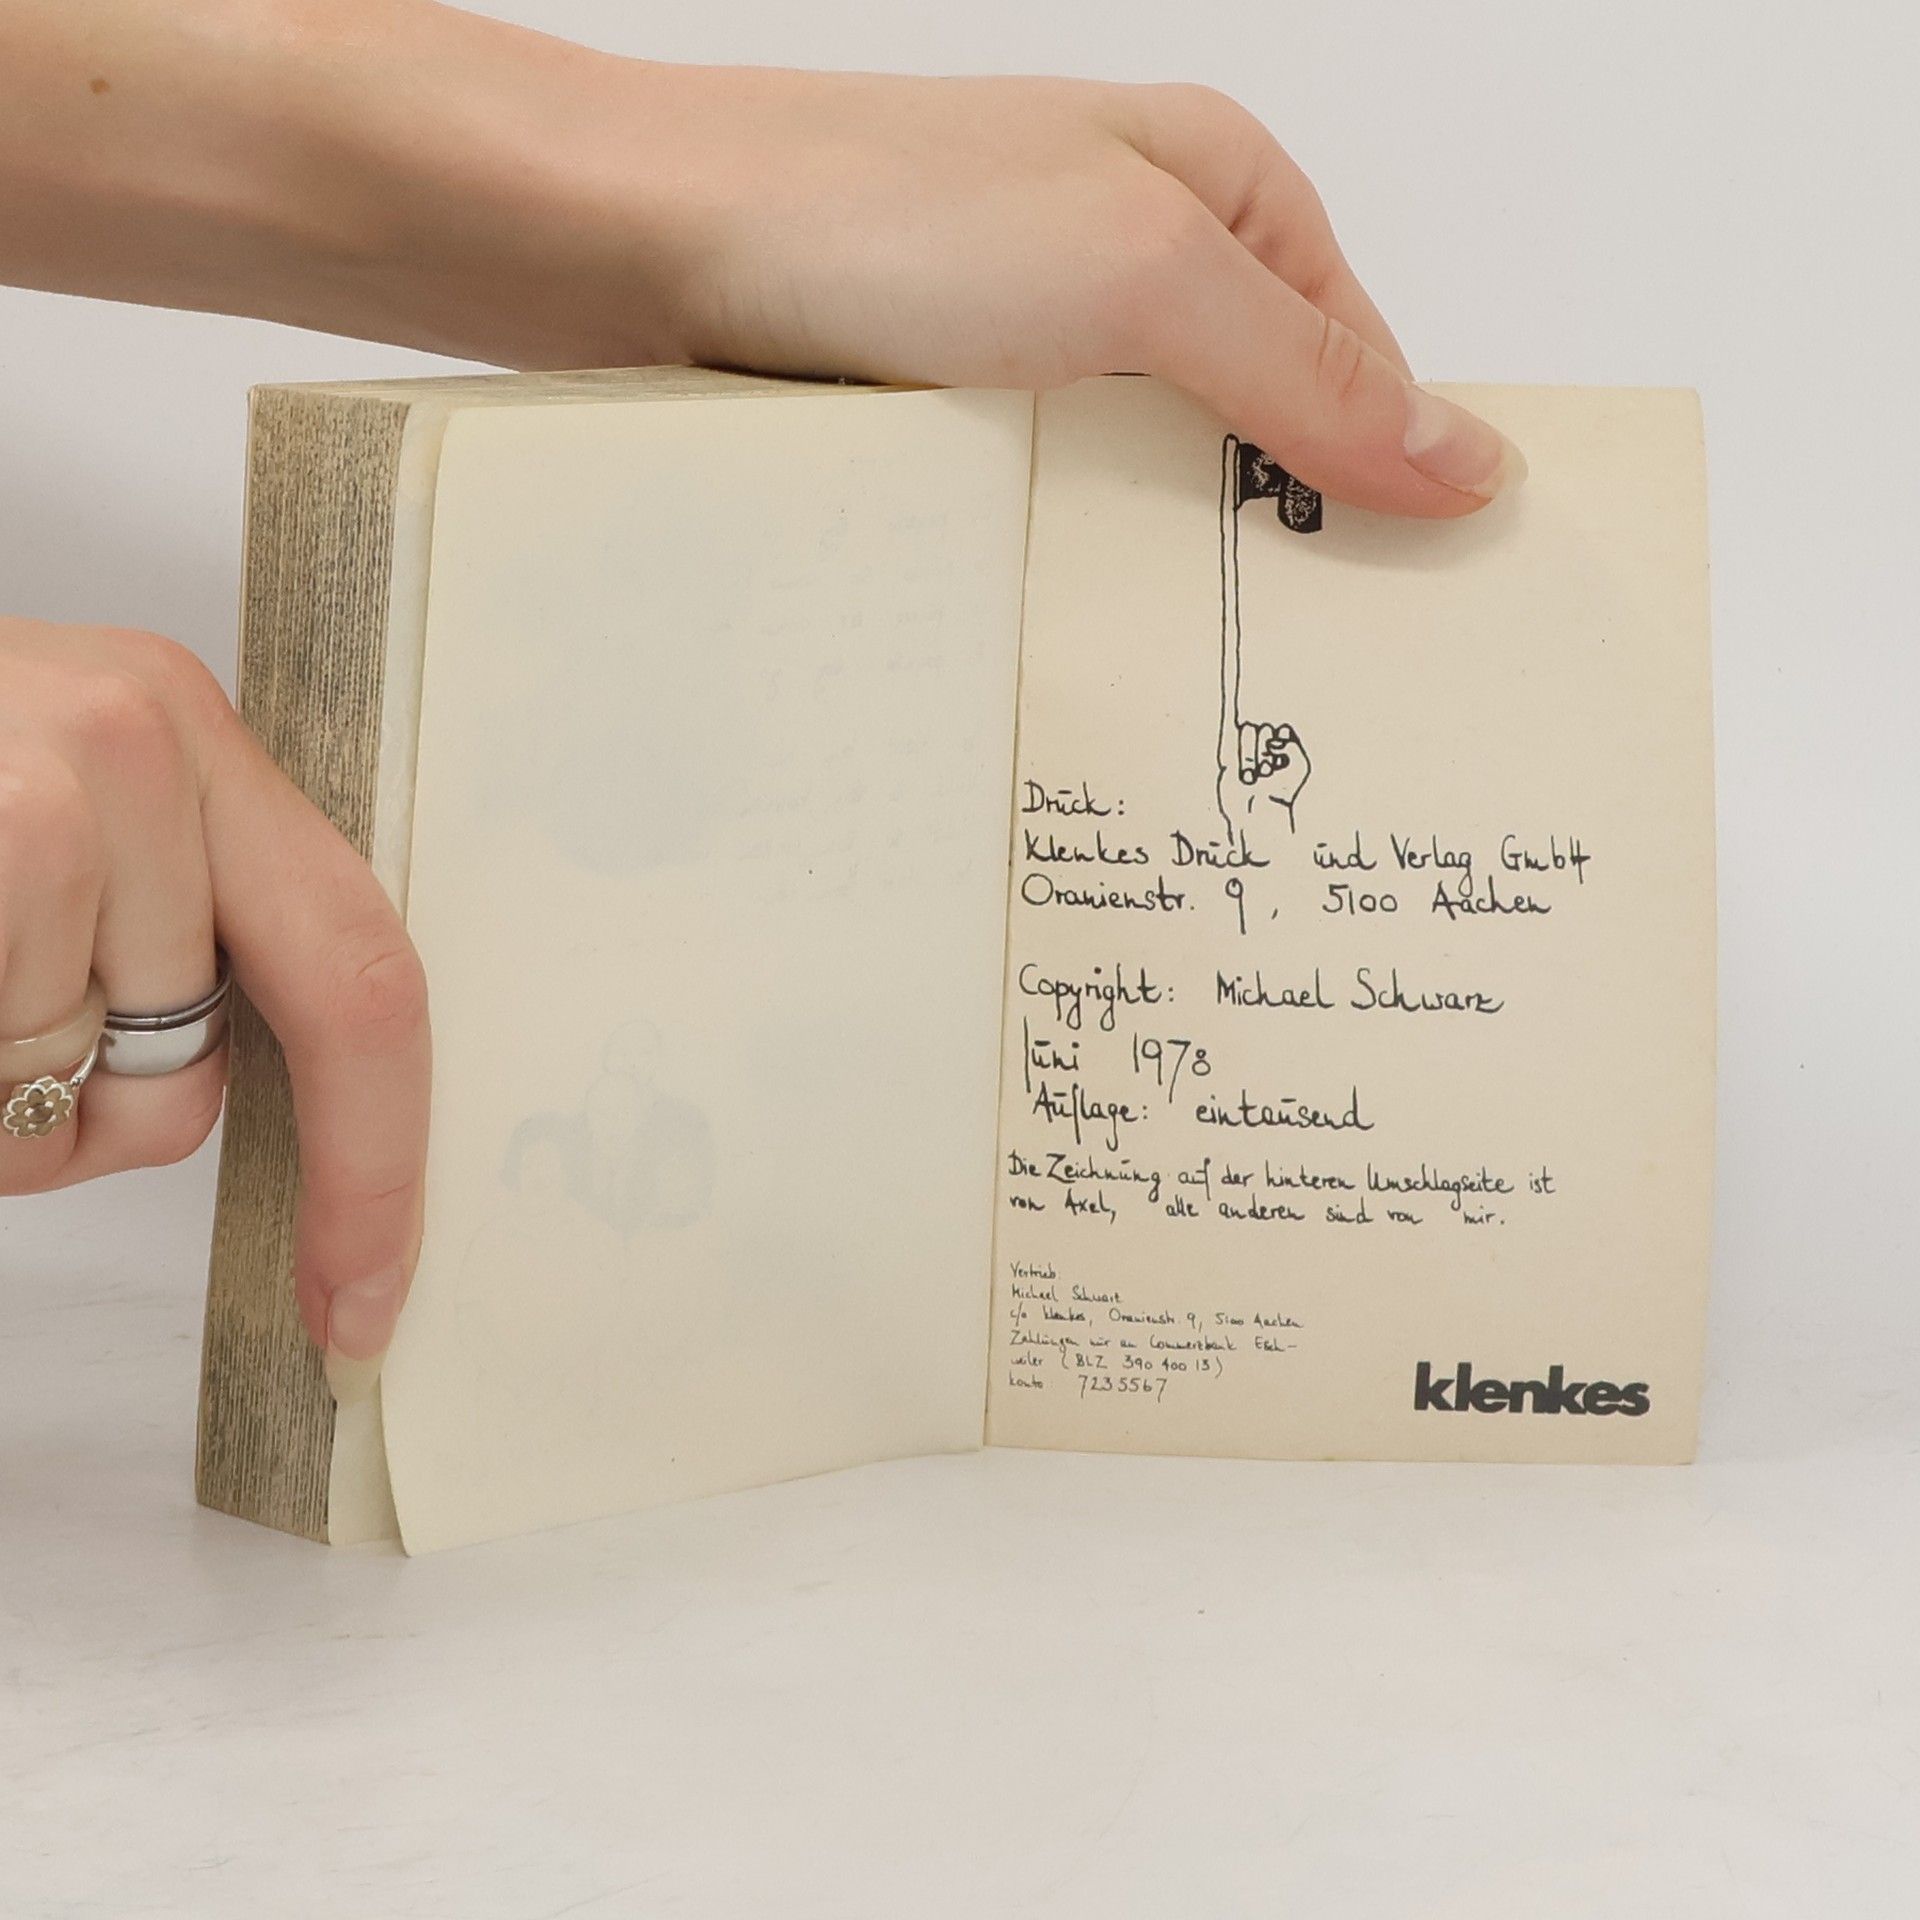 Druck:
Klenkes Druck und Verlag GmbH
Oranienstr. 9, 5100 Aachen
Copyright: Michael Schwarz
Juni 1978
Auflage: eintausend
Die Zeichnung auf der hinteren Umschlagseite ist
von Axel, alle anderen sind von mir.
Vertrieb:
Michael Schwarz
c/o klenkes, Oranienstr. 9, 5100 Aachen
Zahlungen nur an Commerzbank Esch-
weiler (BLZ 390 400 13)
konto: 7235567
klenkes